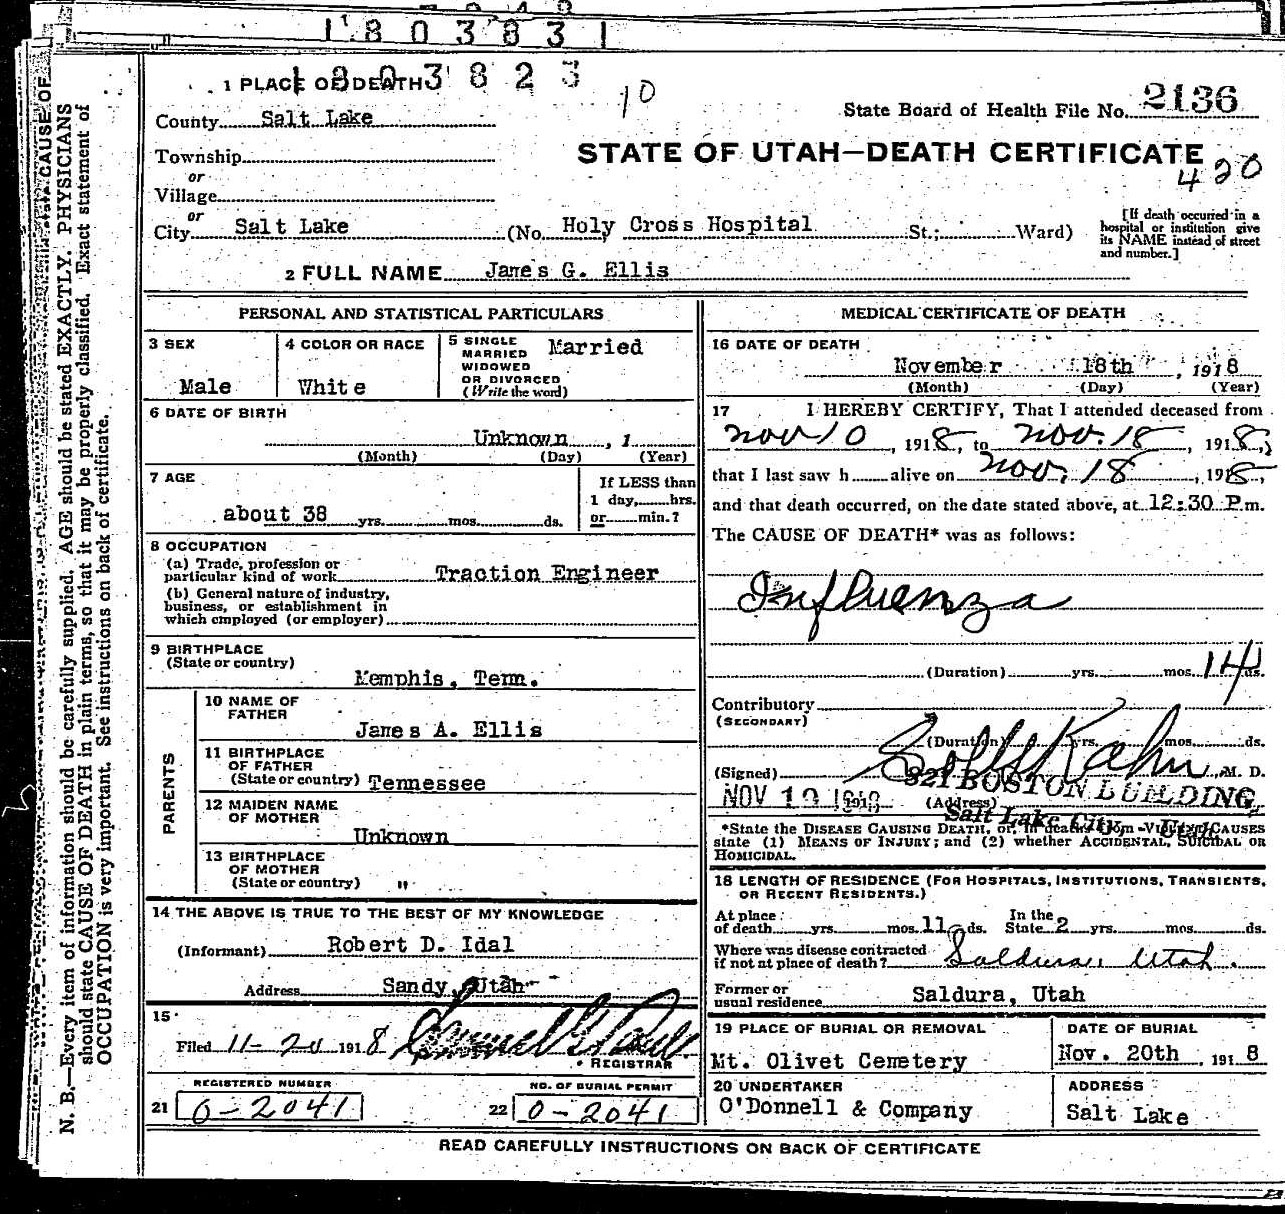 1803831
1803823
10
1 PLACE OF DEATH
State Board of Health File No. 2136
County Salt Lake
STATE OF UTAH—DEATH CERTIFICATE
420
Township
or
Village
or
City Salt Lake (No. Holy Cross Hospital St.; Ward)
[If death occurred in a
hospital or institution give
its NAME instead of street
and number.]
2 FULL NAME James G. Ellis
PERSONAL AND STATISTICAL PARTICULARS
3 SEX
Male
4 COLOR OR RACE
White
5 SINGLE
MARRIED
WIDOWED
OR DIVORCED
(Write the word)
Married
6 DATE OF BIRTH
Unknown, 1
(Month) (Day) (Year)
7 AGE
about 38 yrs. mos. ds.
If LESS than
1 day, hrs.
or min.?
8 OCCUPATION
(a) Trade, profession or
particular kind of work Traction Engineer
(b) General nature of industry,
business, or establishment in
which employed (or employer)
9 BIRTHPLACE
(State or country)
Memphis, Tenn.
PARENTS
10 NAME OF
FATHER
James A. Ellis
11 BIRTHPLACE
OF FATHER
(State or country) Tennessee
12 MAIDEN NAME
OF MOTHER
Unknown
13 BIRTHPLACE
OF MOTHER
(State or country) "
14 THE ABOVE IS TRUE TO THE BEST OF MY KNOWLEDGE
(Informant) Robert D. Idal
Address Sandy, Utah
15
Filed 11-20 1918
REGISTRAR
REGISTERED NUMBER
21 0-2041
NO. OF BURIAL PERMIT
22 0-2041
MEDICAL CERTIFICATE OF DEATH
16 DATE OF DEATH
November 18th, 1918
(Month) (Day) (Year)
17 I HEREBY CERTIFY, That I attended deceased from
Nov 10, 1918, to Nov. 18, 1918,
that I last saw h alive on Nov. 18, 1918,
and that death occurred, on the date stated above, at 12:30 P.m.
The CAUSE OF DEATH* was as follows:
Influenza
(Duration) yrs. mos. 14 ds.
Contributory
(SECONDARY)
(Duration) yrs. mos. ds.
(Signed) Kahn, M. D.
NOV 19 1918 (Address) 321 BOSTON BUILDING
Salt Lake City - Utah
*State the DISEASE CAUSING DEATH, or, in deaths from VIOLENT CAUSES
state (1) MEANS OF INJURY; and (2) whether ACCIDENTAL, SUICIDAL OR
HOMICIDAL.
18 LENGTH OF RESIDENCE (FOR HOSPITALS, INSTITUTIONS, TRANSIENTS,
OR RECENT RESIDENTS.)
At place
of death yrs. mos. 11 ds.
In the
State 2 yrs. mos. ds.
Where was disease contracted
if not at place of death? Saldura, Utah.
Former or
usual residence Saldura, Utah
19 PLACE OF BURIAL OR REMOVAL
Mt. Olivet Cemetery
DATE OF BURIAL
Nov. 20th, 1918
20 UNDERTAKER
O'Donnell & Company
ADDRESS
Salt Lake
READ CAREFULLY INSTRUCTIONS ON BACK OF CERTIFICATE
N. B.—Every item of information should be carefully supplied. AGE should be stated EXACTLY. PHYSICIANS
should state CAUSE OF DEATH in plain terms, so that it may be properly classified. Exact statement of
OCCUPATION is very important. See instructions on back of certificate.
CAUSE OF